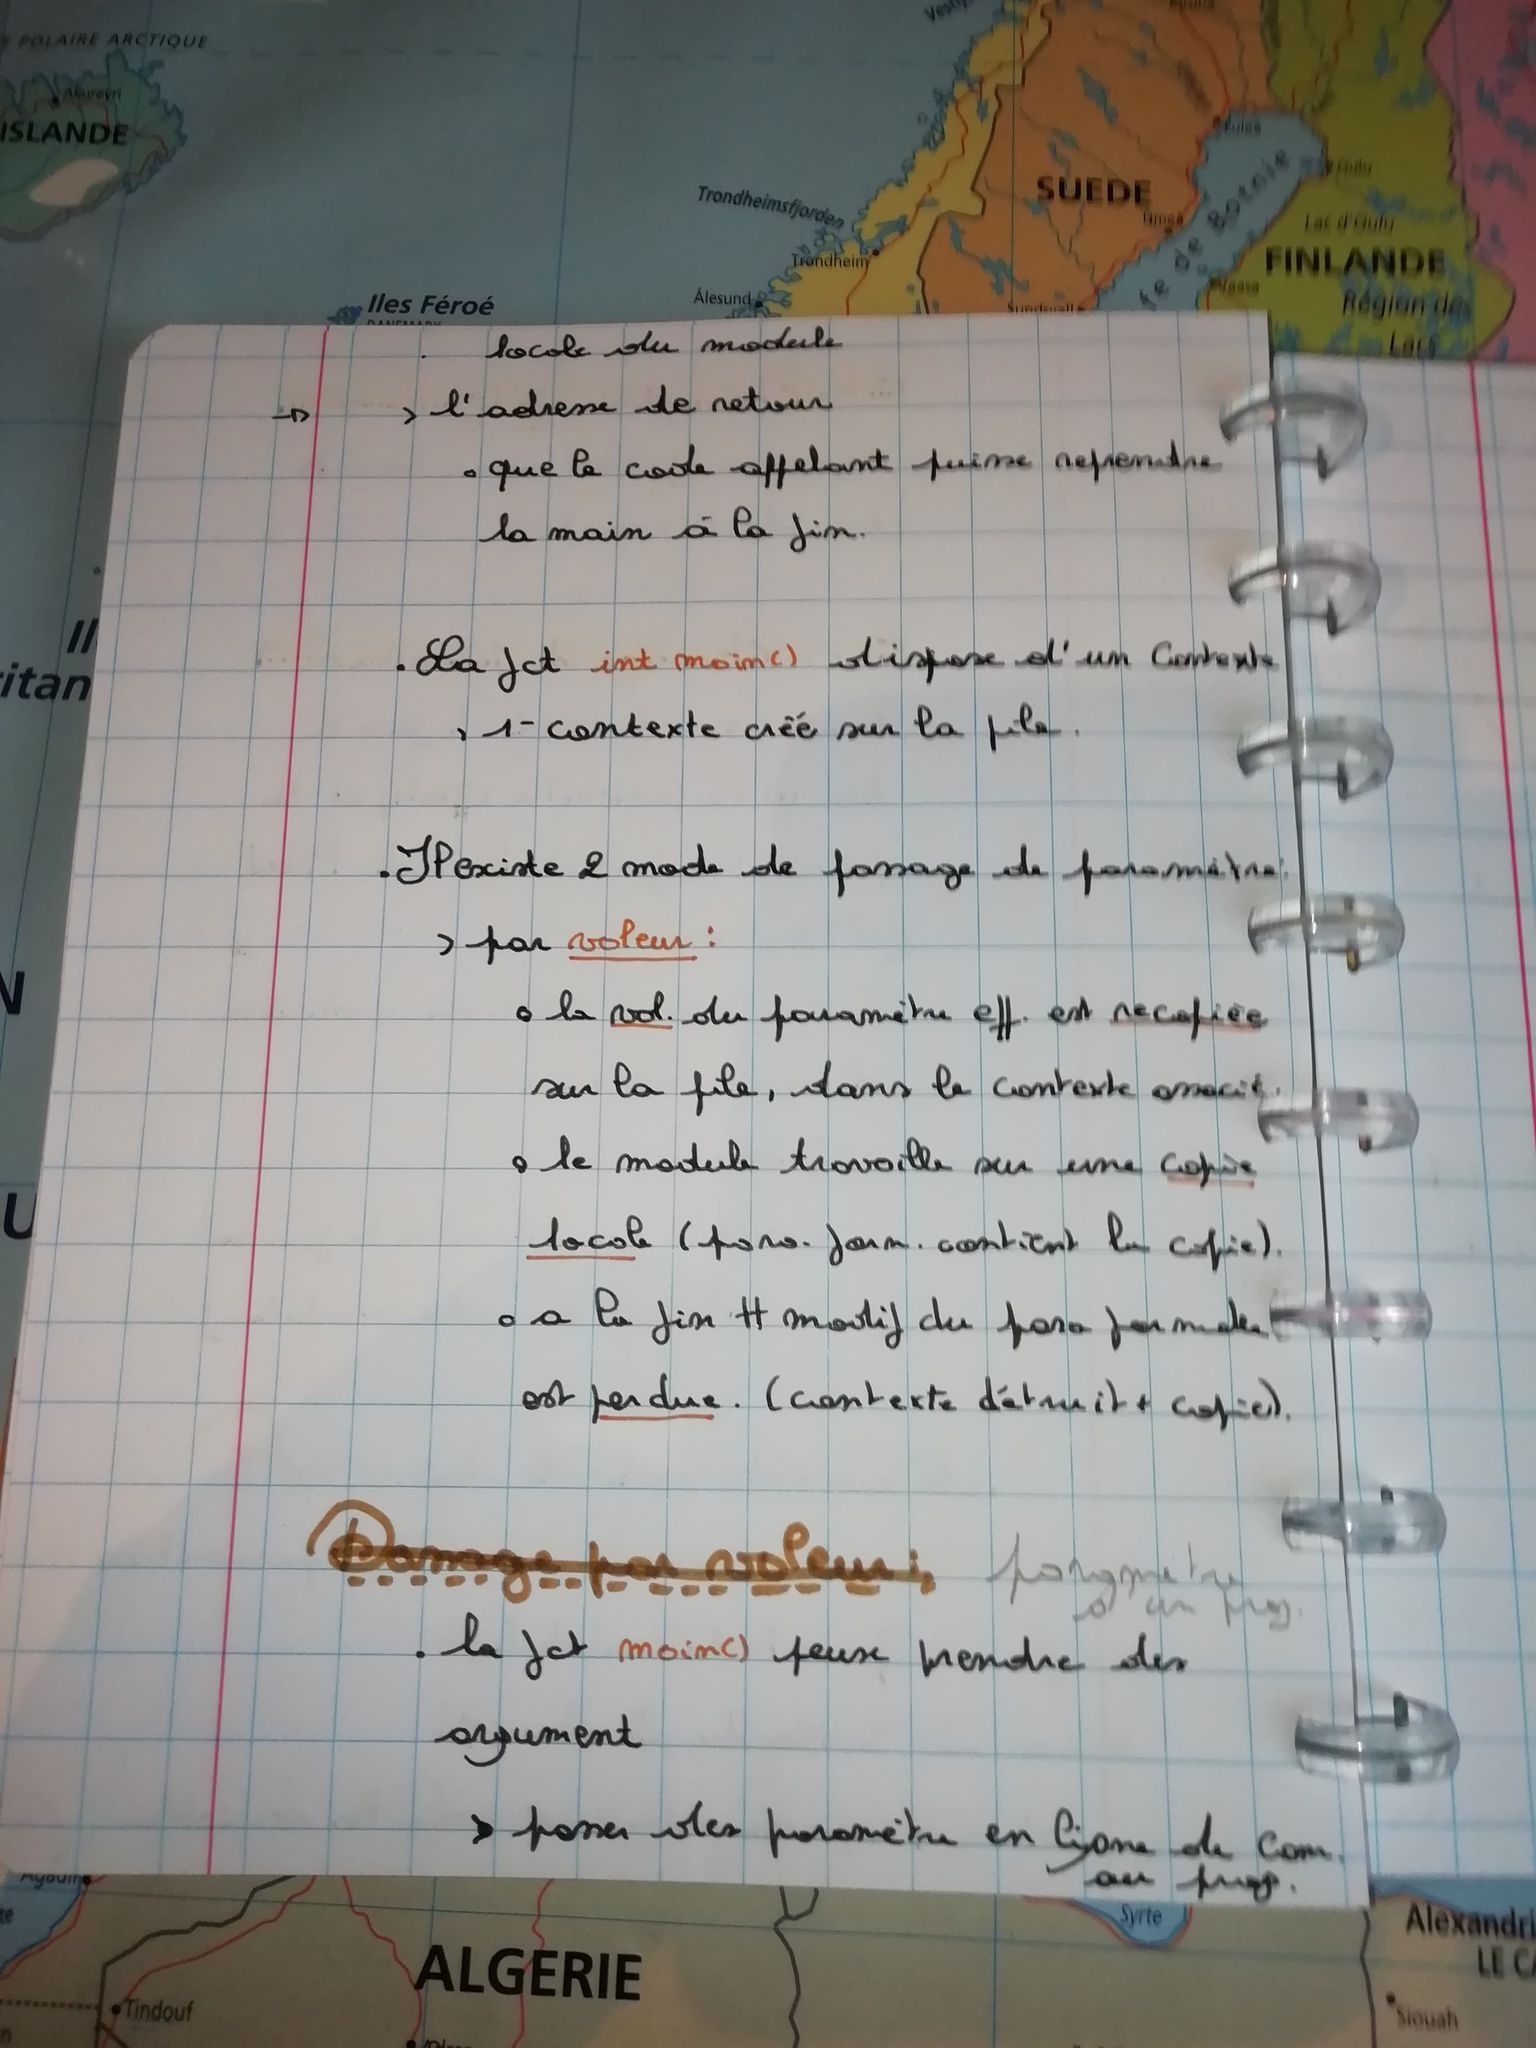 E POLAIRE ARCTIQUE
Akureyri
ISLANDE
Trondheimsfjorden
SUEDE
Umea
Lac d'Oulu
Trondheim
FINLANDE
Vaasa
Région des
Lacs
Iles Féroé
Ålesund
locale du module
→ > l'adresse de retour
∘ que le code appelant puisse reprendre
la main à la fin.
. La fct int main() dispose d'un Contexte
> 1- contexte créé sur la pile.
. Il existe 2 mode de passage de paramètre:
> par valeur :
∘ la val. du paramètre eff. est recopiée
sur la pile, dans le contexte associé.
∘ le module travaille sur une copie
locale (para. form. contient la copie).
∘ a la fin tt modif du para formelle
est perdue. (contexte détruit + copie).
Passage par valeur : paramètre
à un prog.
. la fct main() peux prendre des
argument
> passer des paramètre en ligne de com.
au prog.
Syrte
Alexandri
LE CA
ALGERIE
Tindouf
Siouah